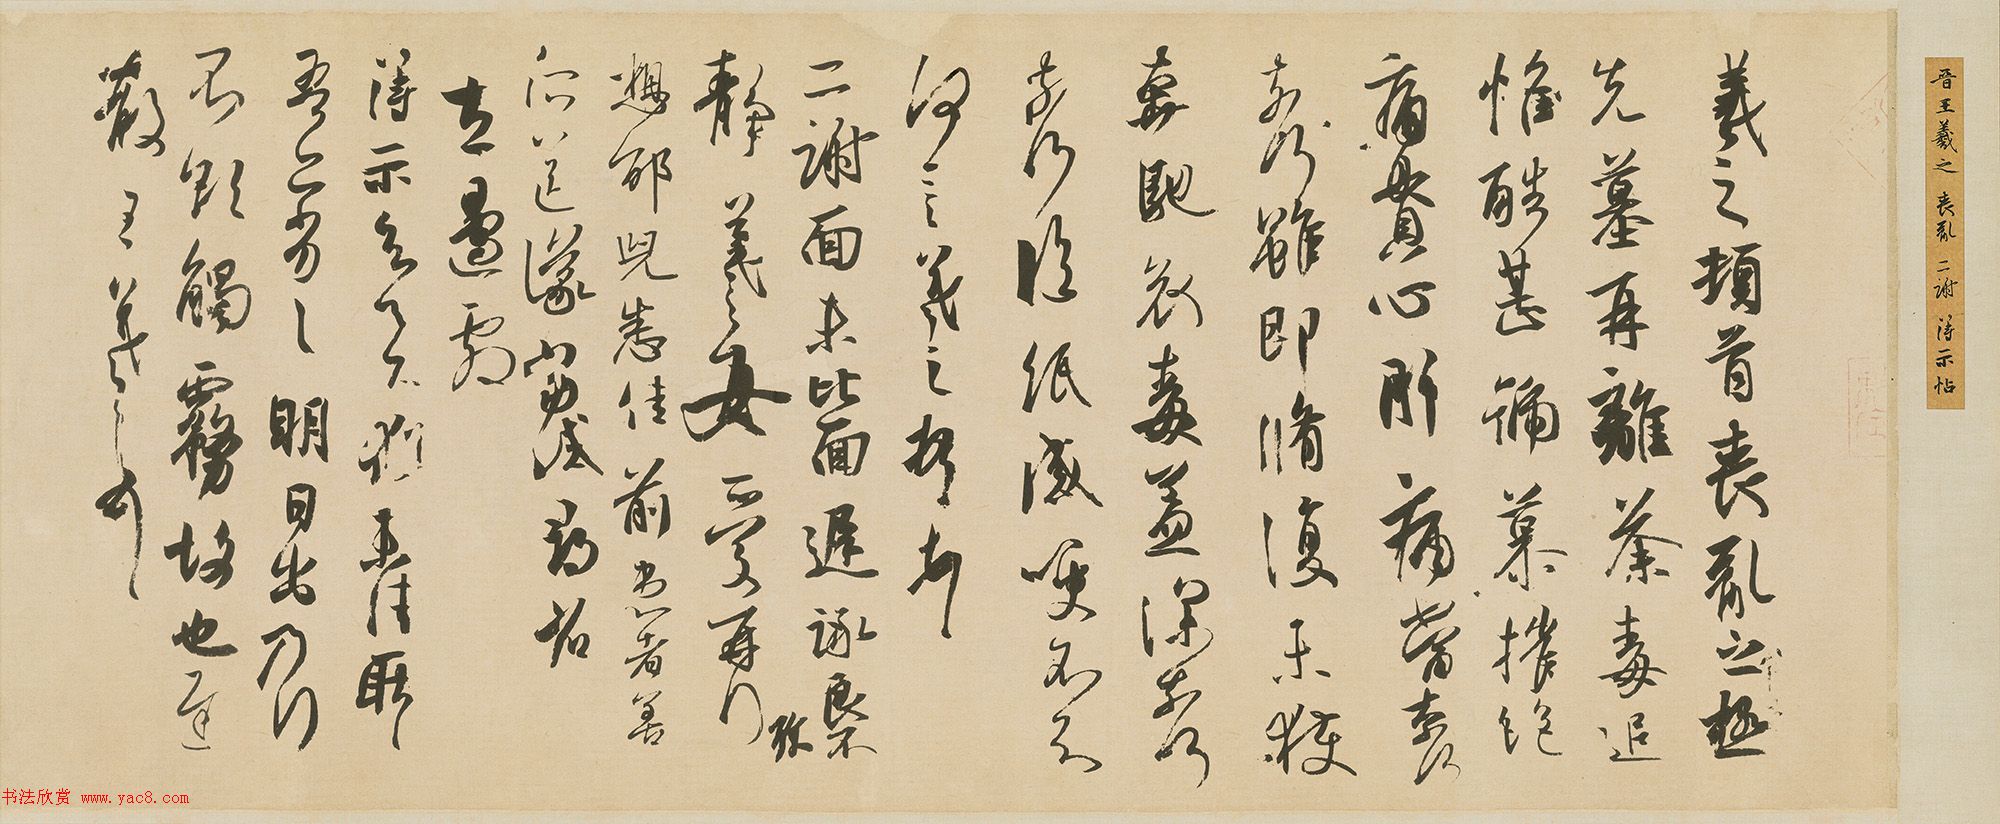 晋王羲之 喪亂 二謝 得示帖
羲之頓首喪亂之極
先墓再離荼毒追
惟酷甚號慕摧絕
痛貫心肝痛當奈何
奈何雖即脩復未獲
奔馳哀毒益深奈何
奈何臨紙感哽不知
何言羲之頓首頓首
二謝面未比面遲詠良不
靜羲之女愛再拜
想邵兒悉佳前患者善
所送議當試尋省
左邊劇
得示知足下猶未佳耿耿
吾亦劣劣明日出乃行
不欲觸霧故也遲
散王羲之頓首
书法欣赏 www.yac8.com